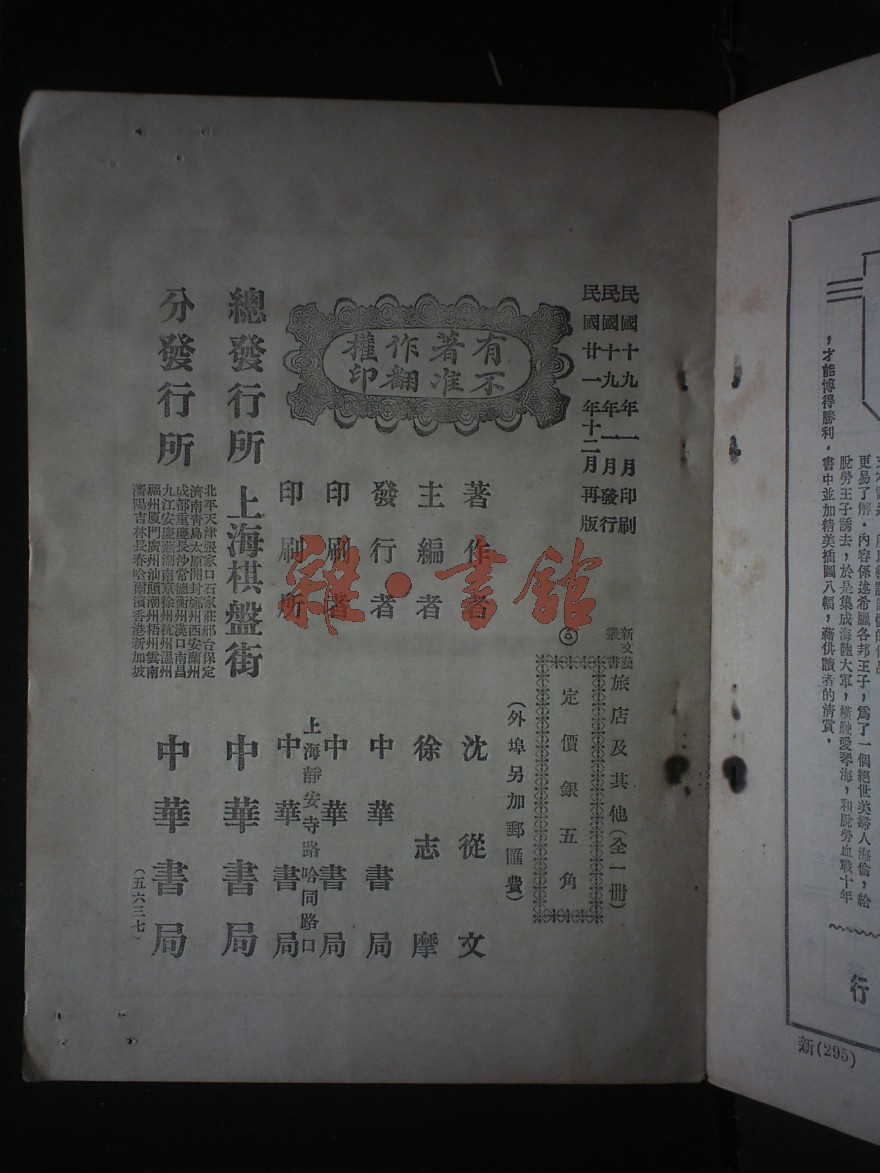 民國十九年一月印刷
民國十九年一月發行
民國廿一年十二月再版
新文藝
叢書
旅店及其他(全一冊)
定價銀五角
(外埠另加郵匯費)
有著作權
不准翻印
著作者 沈從文
主編者 徐志摩
發行者 中華書局
印刷者 中華書局
上海靜安寺路哈同路口
印刷所 中華書局
總發行所 上海棋盤街 中華書局
分發行所
北平天津張家口石家莊邢台保定
濟南青島太原開封鄭州西安蘭州
成都重慶長沙常德衡州漢口南昌
九江安慶蕪湖南京徐州杭州溫州
福州廈門廣州汕頭潮州梧州雲南
瀋陽吉林長春哈爾濱香港新加坡
中華書局
(五六三七)
雜·書館
更易了解.內容係述希臘各邦王子,爲了一個絕世美婦人海倫,給
脫勞王子誘去,於是集成海陸大軍,橫駛愛琴海,和脫勞血戰十年
,才能博得勝利.書中並加精美插圖八幅,藉供讀者的清賞.
行
新(295)